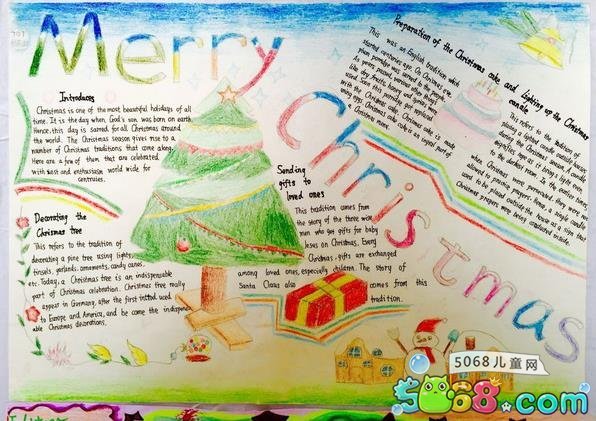 Merry
Christmas
Introduces
Christmas is one of the most beautiful holidays of all
time. It is the day when God's son was born on earth
Hence, this day is sacred for all Christians around
the world. The Christmas season gives rise to a
number of Christmas traditions that come along.
Here are a few of them that are celebrated
with zest and enthusiasm world wide for
centuries.
Decorating the
Christmas tree
This refers to the tradition of
decorating a pine tree using lights,
tinsels, garlands, ornaments, candy canes,
etc. Today, a Christmas tree is an indispensable
part of Christmas celebration. Christmas tree really
appear in Germany, after the first introd uced
to Europe and America, and be come the indispens
able Christmas decorations.
Sending
gifts to
loved ones
This tradition comes from
the story of the three wise
men who got gifts for baby
Jesus on Christmas. Every
Christmas, gifts are exchanged
among loved ones, especially children. The story of
Santa Claus also comes from this
tradition.
Preparation of the Christmas cake and Lighting up the Christmas
candle
This was an English tradition which
started centuries ago. On Christmas
plum porridge was served to the people.
As years passed, various other things
like dry fruits, honey and spices were
used. Soon this porridge was replaced
with the Christmas cake. Christmas cake is made
using eggs. Christmas cake is an integral part of
a Christmas menu.
This refers to the tradition of
placing a lighted candle outside houses,
during the Christmas season. A candle
signifies hope as it brings a light even
to the darkest room. In the earlier times,
when Christians were persecuted, they were not
allowed to practice prayers. Hence a single candle
used to be placed outside the house as a sign that
Christmas prayers were being conducted inside.
5068儿童网
5068.com